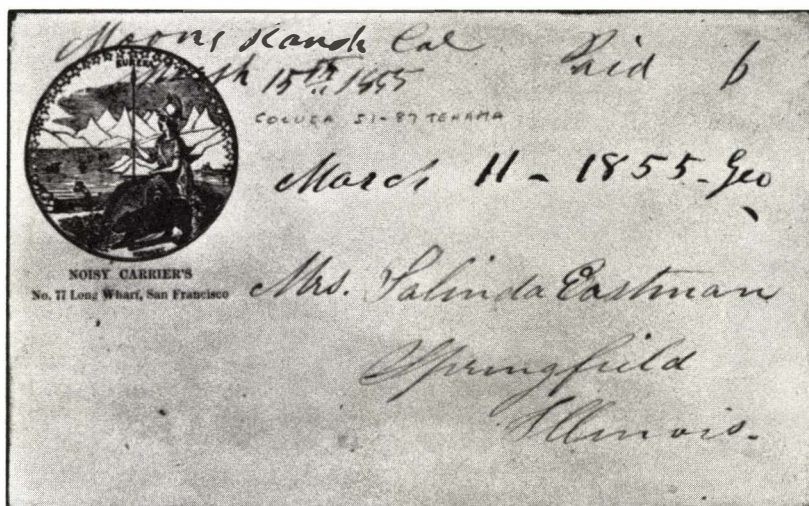 Moons Ranch Cal
March 15th 1855
Paid 6
COLUSA 51-87 TEHAMA
EUREKA
March 11 - 1855 - Geo
NOISY CARRIER'S
No. 77 Long Wharf, San Francisco
Mrs. Salinda Eastman
Springfield
Illinois.